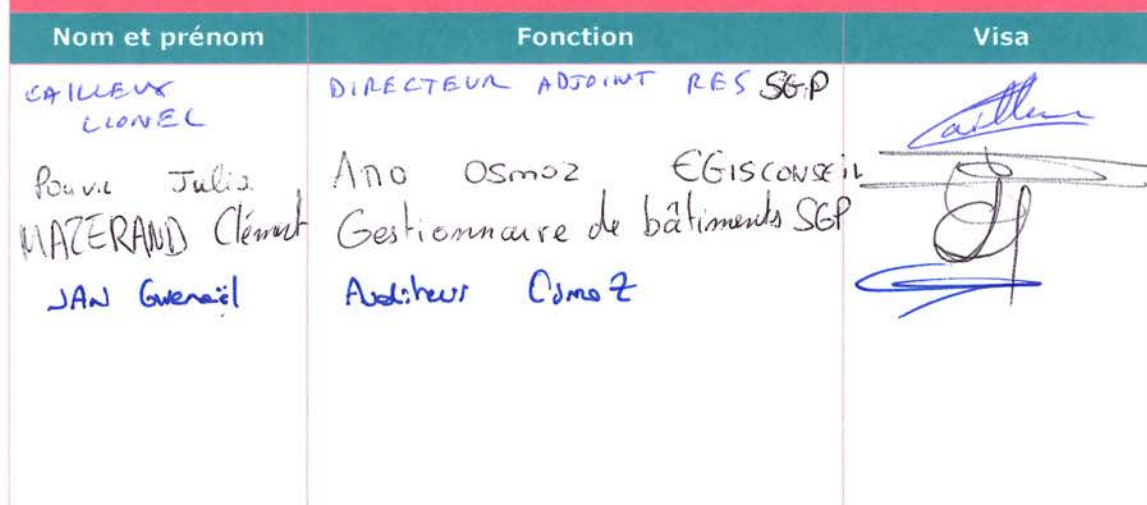 Nom et prénom Fonction Visa
CAILLEUX DIRECTEUR ADJOINT RES SGP
LIONEL
Julia AMO OSmoz EGISCONSEIL
MAZERAND Clément Gestionnaire de bâtiments SGP
JAN Gwenaël Auditeur OsmoZ